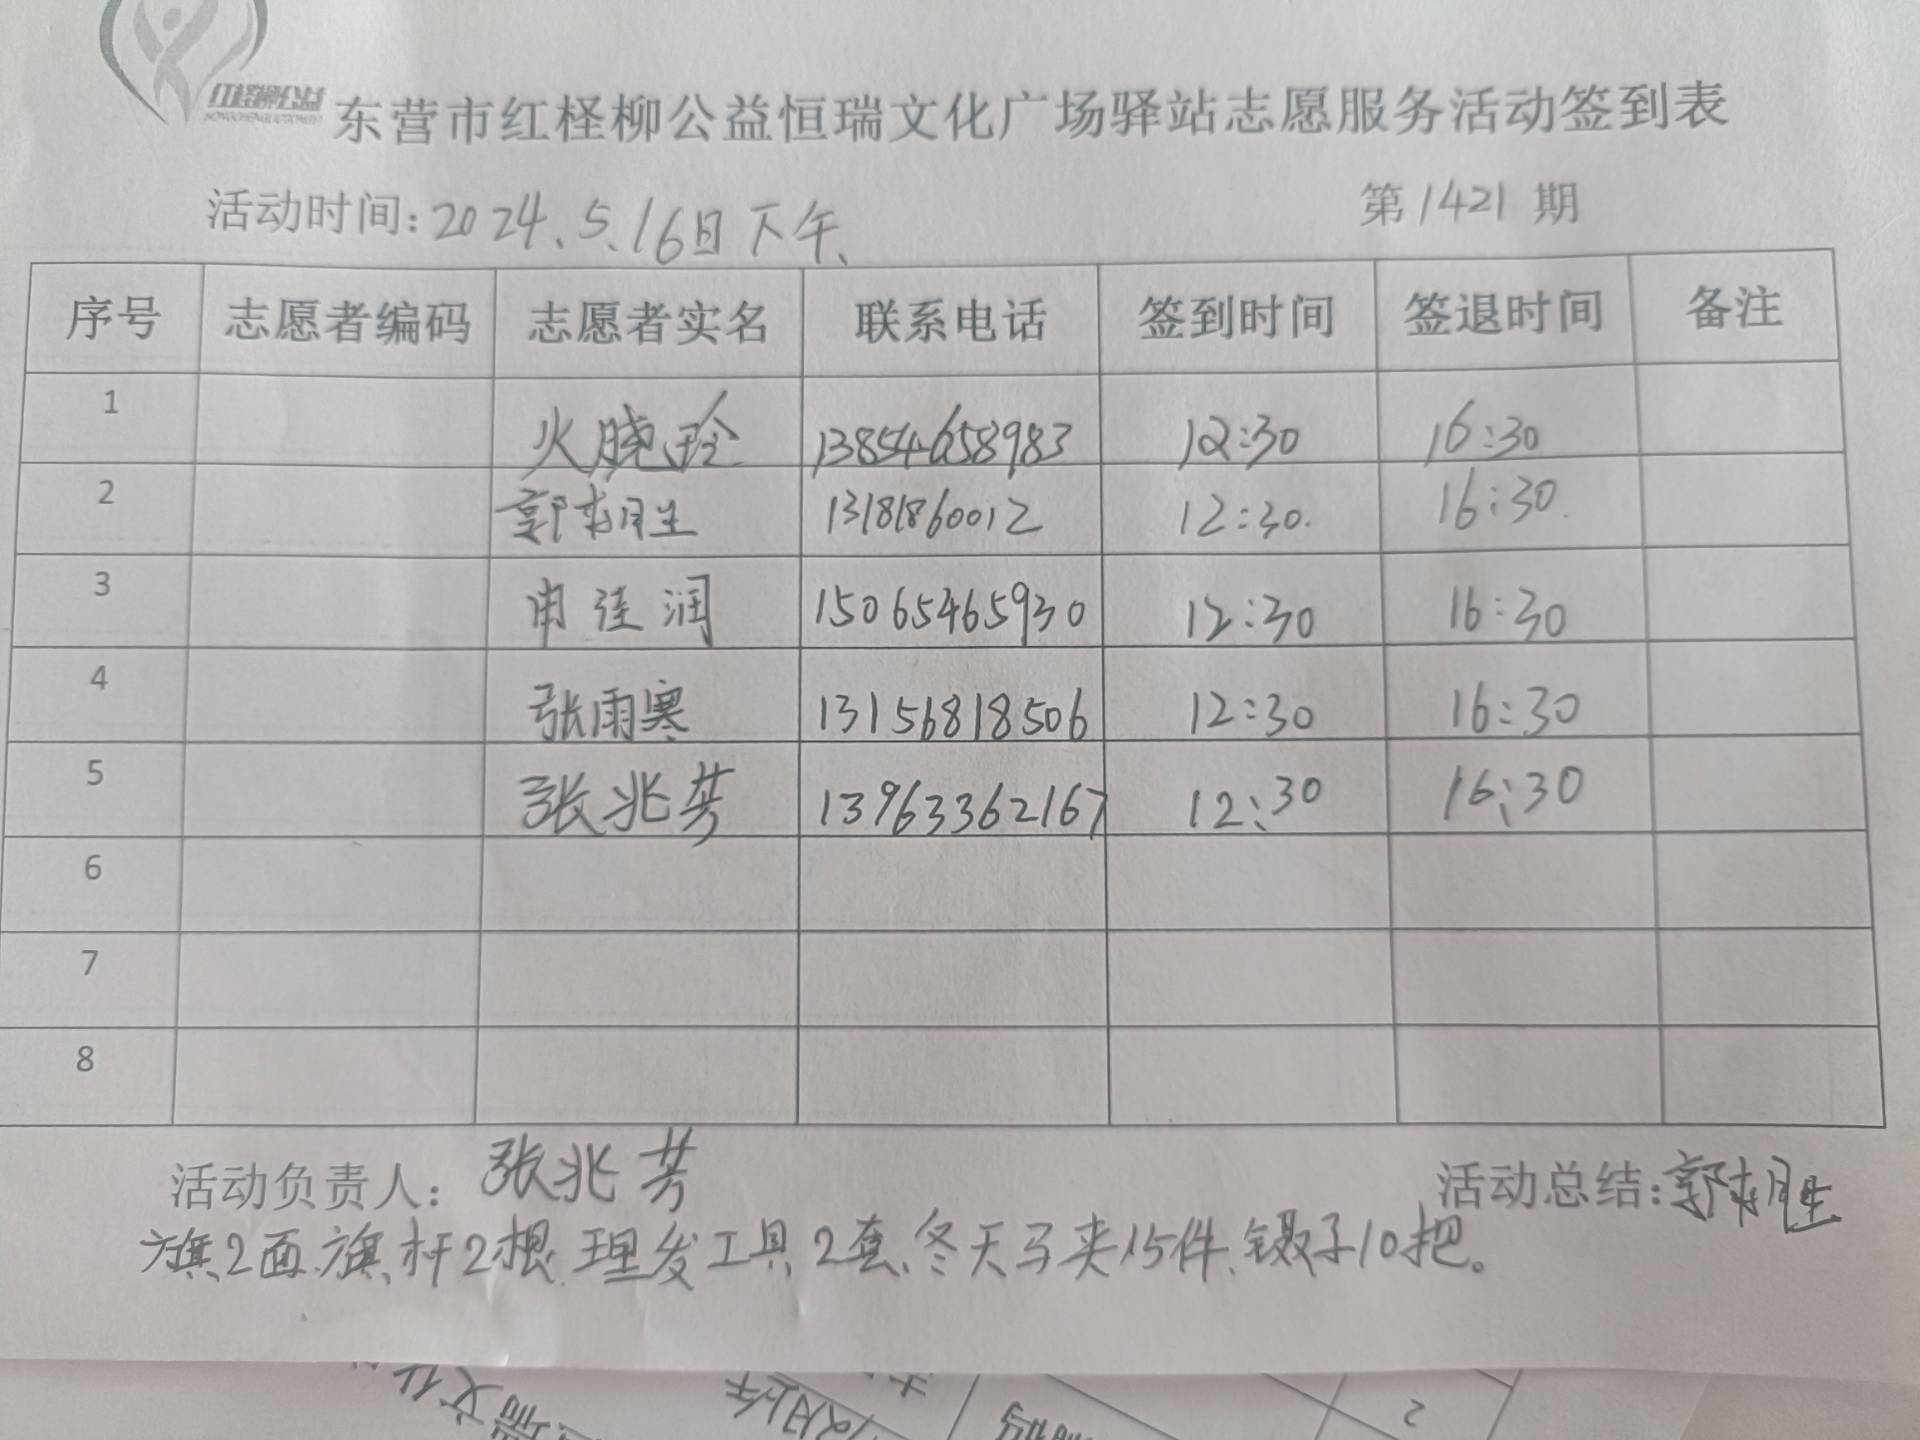 红柽柳公益
东营市红柽柳公益恒瑞文化广场驿站志愿服务活动签到表
活动时间:2024、5、16日下午、 第1421期
序号 志愿者编码 志愿者实名 联系电话 签到时间 签退时间 备注
1 火晓玲 13854658983 12:30 16:30
2 郭胜 13181860012 12:30. 16:30.
3 申佳润 15065465930 12:30 16:30
4 张雨寒 13156818506 12:30 16:30
5 张兆芳 13963362167 12:30 16:30
6
7
8
活动负责人:张兆芳 活动总结:郭胜
旗2面.旗杆2根.理发工具2套、冬天马夹15件、镊子10把。
瑞文化
2